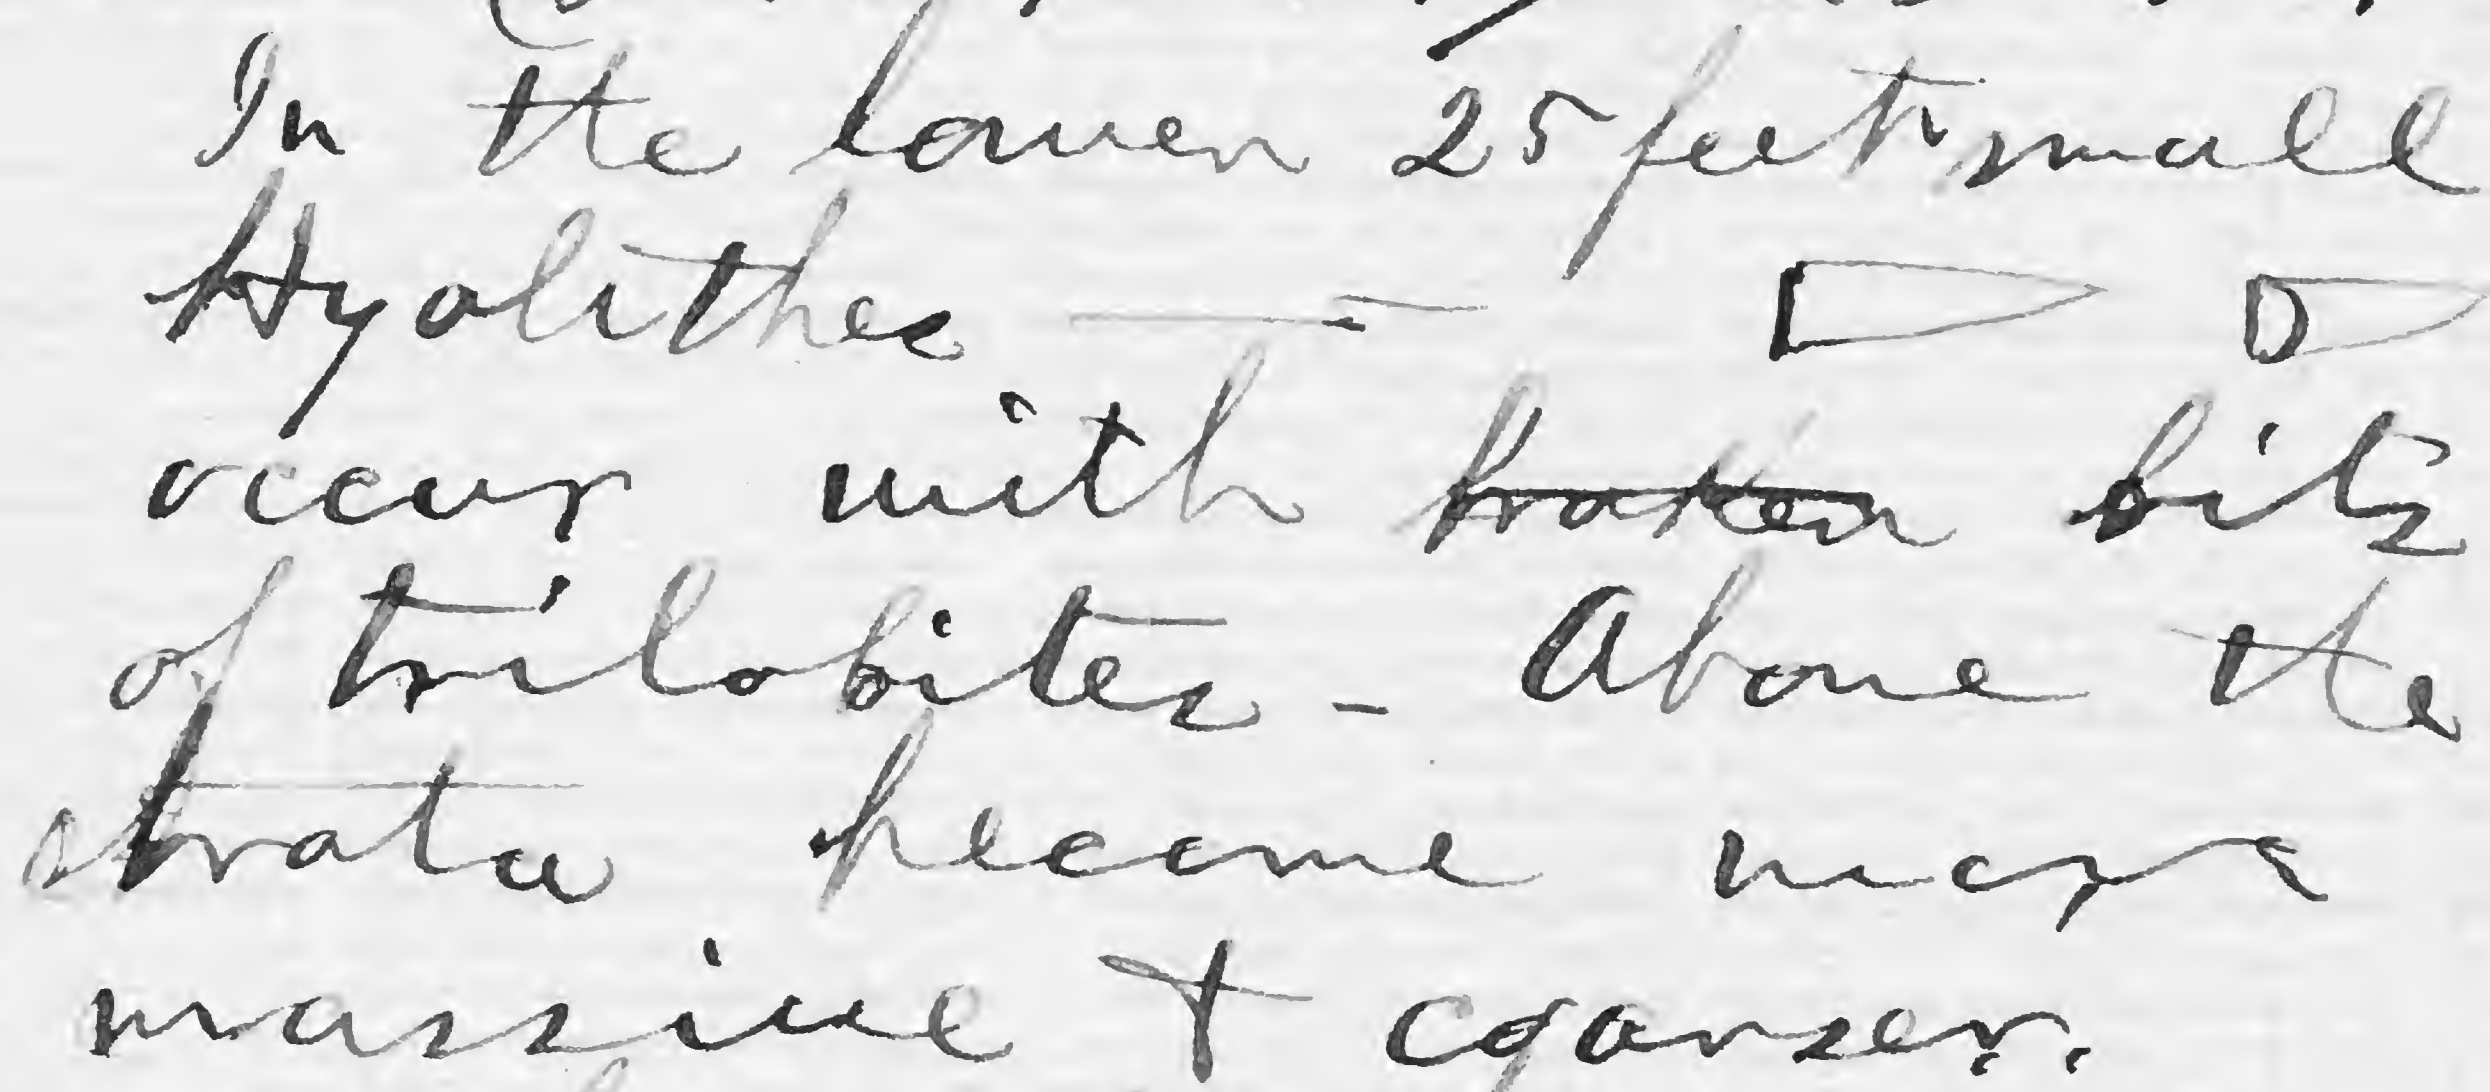 In the lower 25 feet small
Hyolithes —
occur with broken bits
of trilobites - Above the
strata become more
massive + coarser.